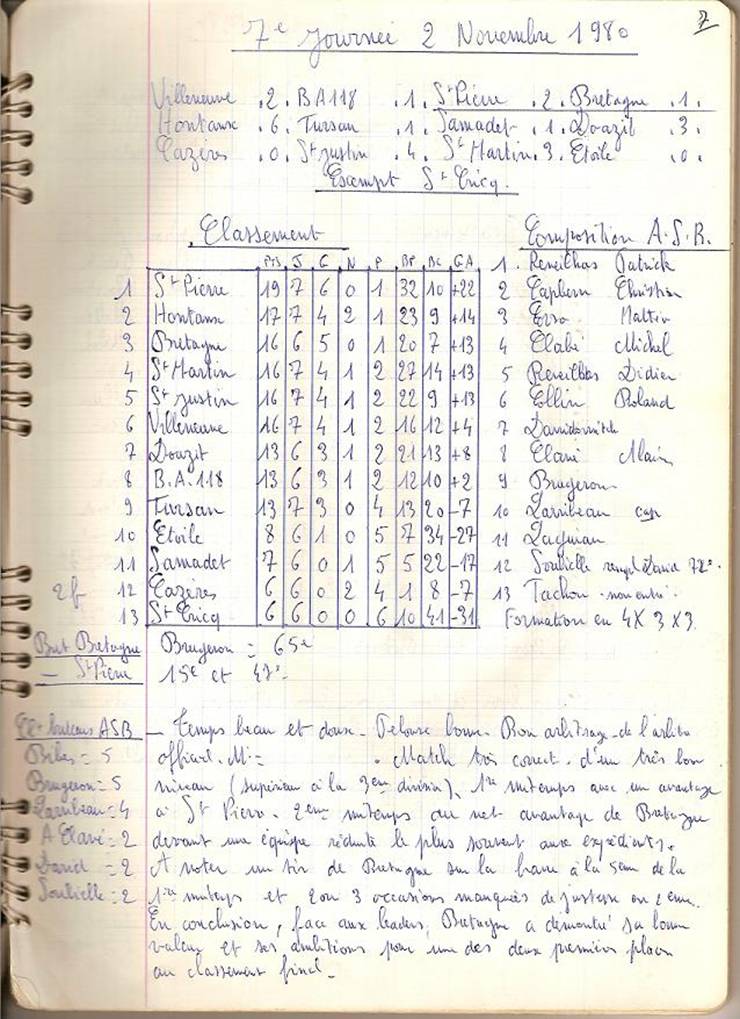 7
7e Journée 2 Novembre 1980
Villeneuve .2. BA118 .1. St Pierre .2. Bretagne .1.
Hontanx .6. Tursan .1. Samadet .1. Doazit .3.
Cazères .0. St Justin .4. St Martin .3. Etoile .0.
Exempt St Cricq.
Classement
Pts J G N P BP BC GA
1 St Pierre 19 7 6 0 1 32 10 +22
2 Hontanx 17 7 4 2 1 23 9 +14
3 Bretagne 16 6 5 0 1 20 7 +13
4 St Martin 16 7 4 1 2 27 14 +13
5 St Justin 16 7 4 1 2 22 9 +13
6 Villeneuve 16 7 4 1 2 16 12 +4
7 Doazit 13 6 3 1 2 21 13 +8
8 B.A.118 13 6 3 1 2 12 10 +2
9 Tursan 13 7 3 0 4 13 20 -7
10 Etoile 8 6 1 0 5 7 34 -27
11 Samadet 7 6 0 1 5 5 22 -17
2f 12 Cazères 6 6 0 2 4 1 8 -7
13 St Cricq 6 6 0 0 6 10 41 -31
Composition A.S.B.
1. Reveilhas Patrick
2 Christian
3 Martin
4 Clavé Michel
5 Reveilhas Didier
6 Roland
7
8 Clavé Alain
9 Brugeron
10 Larribeau cap
11 Daguinau
12 Soubielle rempl David 72e
13 Tachon non entré
Formation en 4X3X3.
But Bretagne Brugeron = 65e
- St Pierre 15e et 47e
buteurs ASB
Bibes = 5
Brugeron = 5
Larribeau = 4
A Clavé = 2
David = 2
Soubielle = 2
- Temps beau et doux - Pelouse bonne - Bon arbitrage de l'arbitre
officiel. Mr = . Match très correct - d'un très bon
niveau (supérieur à la 3eme division). 1re mitemps avec un avantage
à St Pierre. 2eme mitemps au net avantage de Bretagne
devant une équipe réduite le plus souvent aux expédients.
A noter un tir de Bretagne sur la barre à la 5eme de la
1re mitemps et 2 ou 3 occasions manquées de justesse en 2eme.
En conclusion, face aux leaders, Bretagne a démontré sa bonne
valeur et ses ambitions pour une des deux premières places
au classement final.